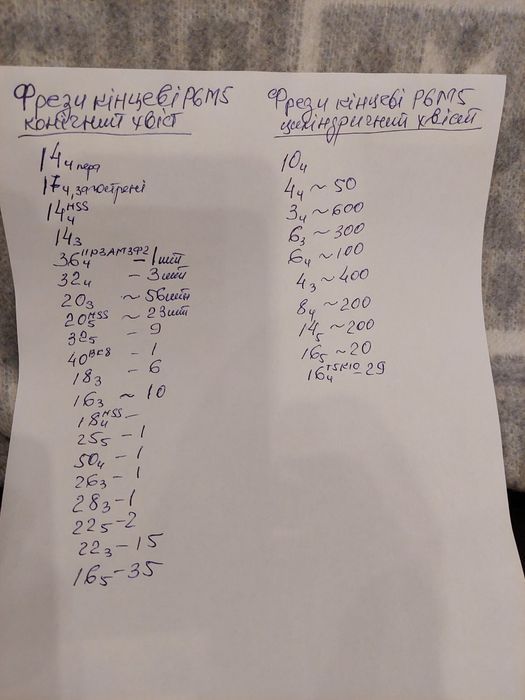 Фрези кінцеві Р6М5
конічний хвіст
14₄ пера
17₄, загострені
14₄ HSS
14₃
36₄ 11Р3АМ3Ф2 – 1шт
32₄ – 3шт
20₃ ~ 56шт
20₅ HSS ~ 23шт
32₅ – 9
40 ВК8 – 1
18₃ – 6
16₃ ~ 10
18₄ HSS –
25₅ – 1
50₄ – 1
26₃ – 1
28₃ – 1
22₅ – 2
22₃ – 15
16₅ – 35
Фрези кінцеві Р6М5
циліндричний хвіст
10₄
4₄ ~ 50
3₄ ~ 600
6₃ ~ 300
6₄ ~ 100
4₃ ~ 400
8₄ ~ 200
14₅ ~ 200
16₅ ~ 20
16₄ Т5К10 – 29